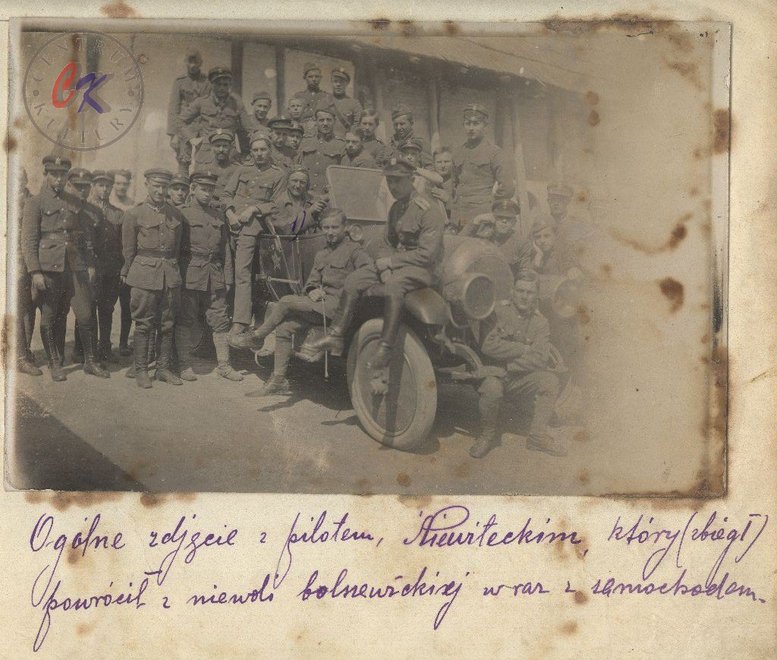 CENTRUM
CK
KULTURY
Ogólne zdjęcie z pilotem, który (zbiegł)
powrócił z niewoli wraz z samochodem.